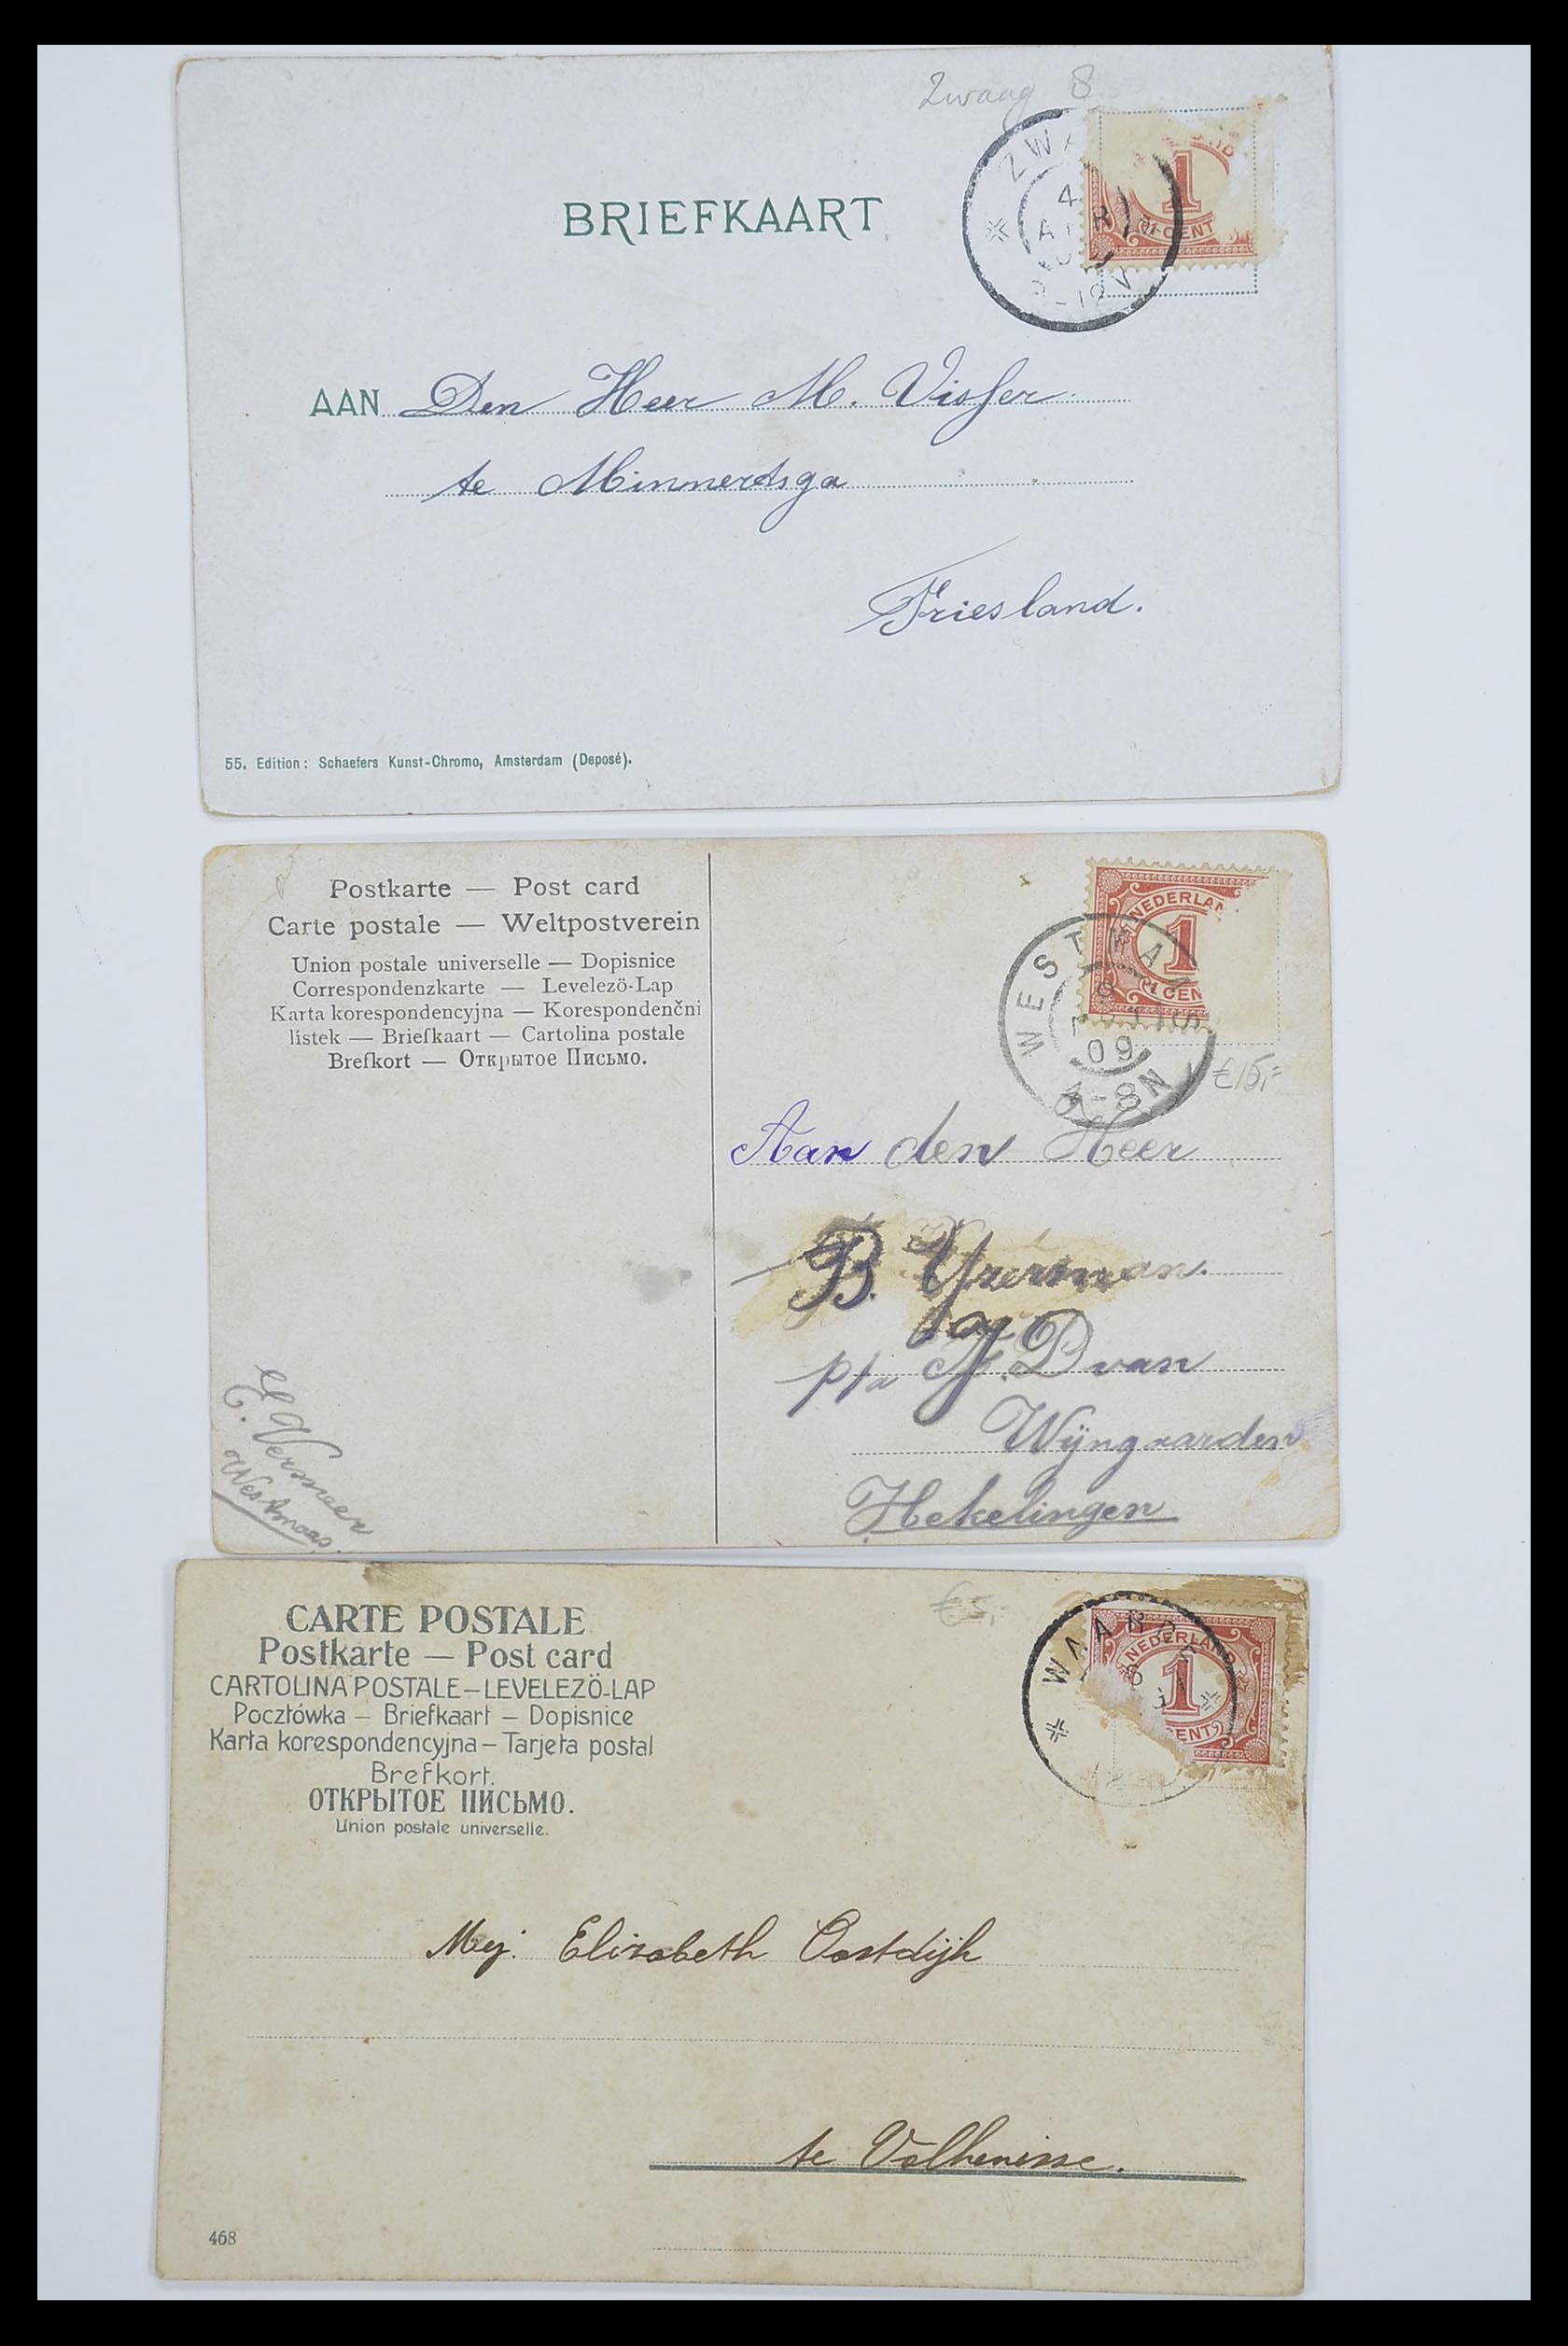 Zwaag 8
ZWA
4
1
CENT
8-12 V
BRIEFKAART
AAN Den Heer M. Visser
te Minnertsga
Friesland.
55. Edition: Schaefers Kunst-Chromo, Amsterdam (Deposé).
Postkarte — Post card
Carte postale — Weltpostverein
Union postale universelle — Dopisnice
Correspondenzkarte — Levelezö-Lap
Karta korespondencyjna — Korespondenční
lístek — Briefkaart — Cartolina postale
Brefkort — Открытое Письмо.
NEDERLAN
1
CEN
WESTMAAS
09
€15,-
Aan den Heer
B. Yzerman.
p/a J. D van
Wijngaarden
Hekelingen
C. Vermeer
Westmaas.
CARTE POSTALE
Postkarte — Post card
CARTOLINA POSTALE – LEVELEZÖ-LAP
Pocztówka – Briefkaart – Dopisnice
Karta korespondencyjna – Tarjeta postal
Brefkort.
ОТКРЫТОЕ ПИСЬМО.
Union postale universelle.
€5,-
WAARDE
NEDERLAND
1
CENT
Mej. Elizabeth Oostdijk
te Valkenisse.
468